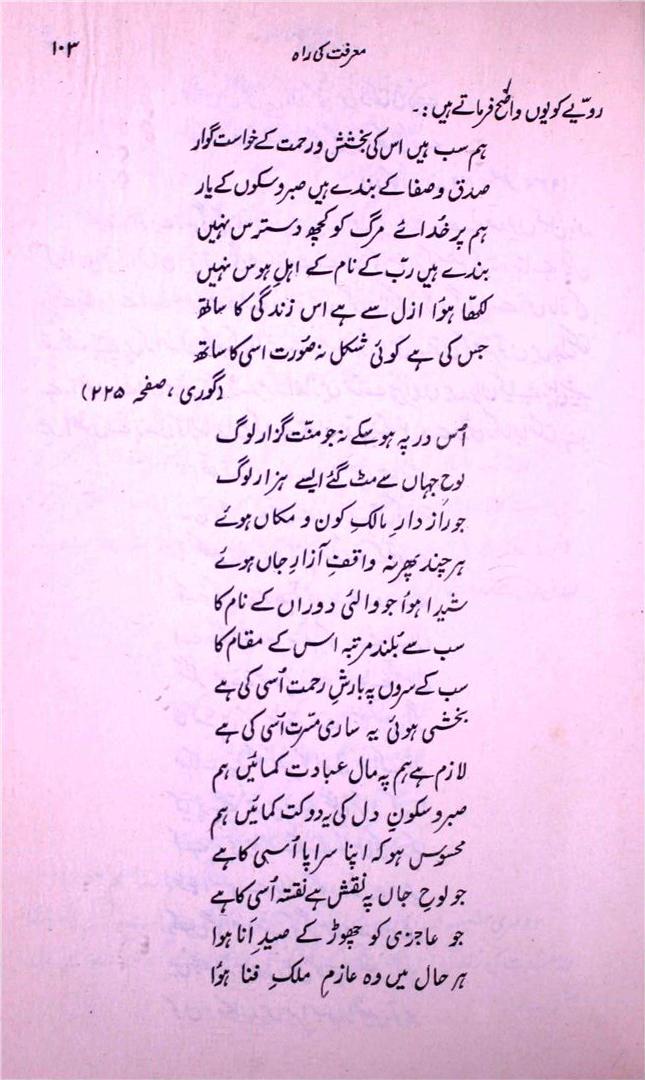 معرفت کی راہ
۱۰۳
رویّے کو یوں واضح فرماتے ہیں :۔
ہم سب ہیں اس کی بخشش و رحمت کے خواست گوار
صدق و صفا کے بندے ہیں صبر و سکوں کے یار
ہم پر خُدائے مرگ کو کچھ دسترس نہیں
بندے ہیں ربّ کے نام کے اہلِ ہوس نہیں
لکھّا ہوُا ازل سے ہے اس زندگی کا ساتھ
جس کی ہے کوئی شکل نہ صوُرت اسی کا ساتھ
(گوری ، صفحہ ۲۲۵)
اُس در پہ ہو سکے نہ جو منّت گزار لوگ
لوحِ جہاں سے مٹ گئے ایسے ہزار لوگ
جو راز دارِ مالکِ کون و مکاں ہوئے
ہر چند پھر نہ واقفِ آزارِ جاں ہوئے
شیدا ہوُا جو والئ دوراں کے نام کا
سب سے بُلند مرتبہ اس کے مقام کا
سب کے سروں پہ بارشِ رحمت اُسی کی ہے
بخشی ہوئی یہ ساری مسّرت اُسی کی ہے
لازم ہے ہم پہ مال عبادت کمائیں ہم
صبر و سکونِ دل کی یہ دولت کمائیں ہم
محسوس ہو کہ اپنا سراپا اُسی کا ہے
جو لوحِ جاں پہ نقش ہے نقشہ اُسی کا ہے
جو عاجزی کو چھوڑ کے صیدِ اَنا ہوا
ہر حال میں وہ عازمِ ملکِ فنا ہوُا